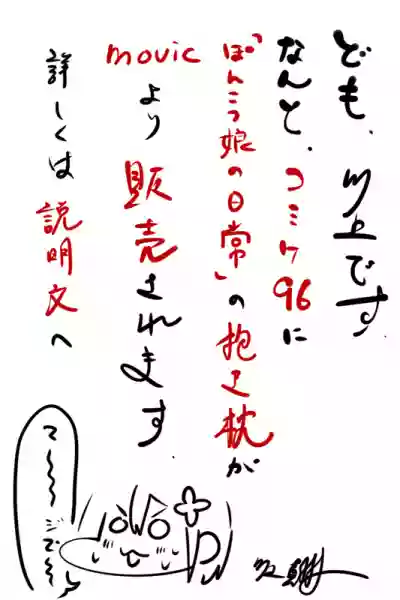 ども、川上です
なんと、コミケ96に
「ぽんこつ娘の日常」の抱き枕が
movicより販売されます
詳しくは説明文へ
て〜〜〜ジでーす